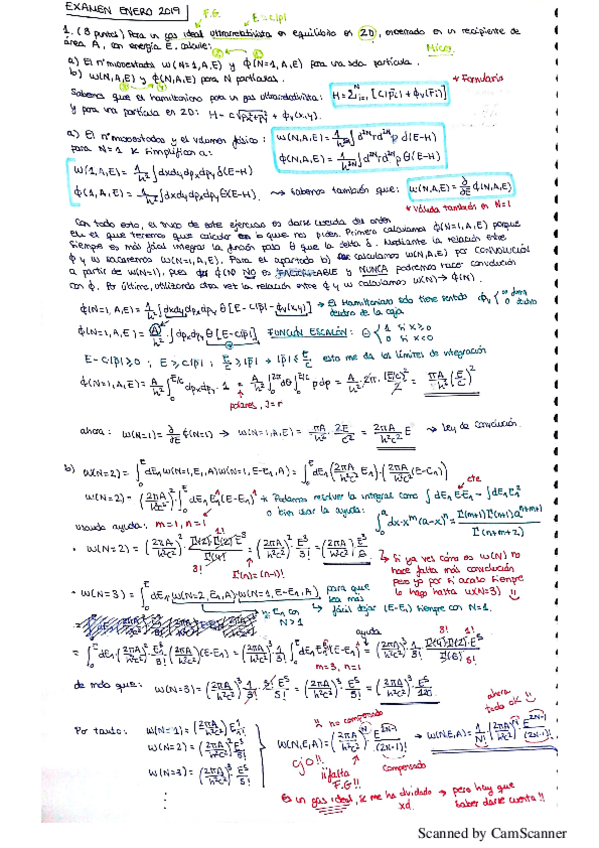 EXAMEN ENERO 2019
F.G. E=c|p|
1. (8 puntos) Para un gas ideal ultrarrelativista en equilibrio en 2D, encerrado en un recipiente de
área A, con energía E, calcule:
Micro.
a) El nºmicroestados ω(N=1,A,E) y ϕ(N=1,A,E) para una sola partícula.
b) ω(N,A,E) y ϕ(N,A,E) para N partículas.
* Formulario
Sabemos que el hamiltoniano para un gas ultrarrelativista: H = Σᵢ₌₁ᴺ [c|p̄ᵢ| + ϕᵥ(r̄ᵢ)]
y para una partícula en 2D: H = c√(pₓ²+p_y²) + ϕᵥ(x,y).
a) El nºmicroestados y el volumen fásico:
para N=1 se simplifican a:
ω(N,A,E) = 1/h²ᴺ ∫d²ᴺr d²ᴺp δ(E-H)
ϕ(N,A,E) = 1/h²ᴺ ∫d²ᴺr d²ᴺp Θ(E-H)
ω(1,A,E) = 1/h² ∫dxdydpₓdp_y δ(E-H)
ϕ(1,A,E) = 1/h² ∫dxdydpₓdp_y Θ(E-H). → Sabemos también que: ω(N,A,E) = ∂/∂E ϕ(N,A,E)
* Válida también en N=1
Con todo esto, el truco de este ejercicio es darse cuenta del orden
en el que tenemos que calcular lo que nos piden. Primero calculamos ϕ(N=1,A,E) porque
siempre es más fácil integrar la función paso Θ que la delta δ. Mediante la relación entre
ϕ y ω sacaremos ω(N=1,A,E). Para el apartado b) calculamos ω(N,A,E) por CONVOLUCIÓN
a partir de ω(N=1), pues ϕ(N) NO es FACTORIZABLE y NUNCA podremos hacer convolución
con ϕ. Por último, utilizando otra vez la relación entre ϕ y ω calculamos ω(N)→ϕ(N).
ϕ(N=1,A,E) = 1/h² ∫dxdydpₓdp_y Θ[E-c|p|-ϕᵥ(x,y)] → El Hamiltoniano solo tiene sentido dentro de la caja
ϕ(N=1,A,E) = A/h² ∫dpₓdp_y Θ[E-c|p|]. FUNCIÓN ESCALÓN: Θ { 1 si x≥0 0 si x<0
E-c|p|≥0 ; E≥c|p| ; E/c≥|p| → |p|≤E/c esto me da los límites de integración
ϕ(N=1,A,E) = A/h² ∫₀^(E/c) dpₓdp_y · 1 = A/h² ∫₀^(2π) dθ ∫₀^(E/c) p dp = A/h² · 2π · (E/c)²/2 = πA/h² (E/c)²
polares, J=r
ahora: ω(N=1) = ∂/∂E ϕ(N=1) → ω(N=1,A,E) = πA/h² · 2E/c² = 2πA/h²c² E → Ley de convolución.
b) ω(N=2) = ∫₀ᴱ dE₁ ω(N=1,E₁,A)ω(N=1,E-E₁,A) = ∫₀ᴱ dE₁ (2πA/h²c² E₁)·(2πA/h²c² (E-E₁))
cte
ω(N=2) = (2πA/h²c²)² · ∫₀ᴱ dE₁ E₁¹(E-E₁)¹ * Podemos resolver la integral como ∫dE₁ E·E₁ - ∫dE₁ E₁²
o bien usar la ayuda: ∫₀ᵃ dx·xᵐ(a-x)ⁿ = Γ(m+1)Γ(n+1)aⁿ⁺ᵐ⁺¹/Γ(n+m+2)
usando ayuda: m=1, n=1
• ω(N=2) = (2πA/h²c²)² · Γ(2)·Γ(2)E³/Γ(4) = (2πA/h²c²)² E³/3! = (2πA/h²c²)² E³/6
3! Γ(n)=(n-1)!
Si ya ves cómo es ω(N) no
hace falta más convolución
pero yo por si acaso siempre
lo hago hasta ω(N=3) !!
• ω(N=3) = ∫₀ᴱ dE₁ ω(N=2,E₁,A)ω(N=1,E-E₁,A) para que sea más fácil dejar (E-E₁) siempre con N=1.
E₁ con N>1
= ∫₀ᴱ dE₁ (2πA/h²c²)² E₁³/3! (2πA/h²c²)(E-E₁) = (2πA/h²c²)³ 1/3! ∫₀ᴱ dE₁ E₁³(E-E₁)¹ = (2πA/h²c²)³ 1/3! Γ(4)Γ(2)·E⁵/Γ(6)
ayuda
m=3, n=1
5!
de modo que: ω(N=3) = (2πA/h²c²)³ 1/3! · 3!·E⁵/5! = (2πA/h²c²)³ · E⁵/5! = (2πA/h²c²)³ E⁵/120
ahora
todo ok !!
Por tanto: ω(N=1) = (2πA/h²c²)E¹/1!
ω(N=2) = (2πA/h²c²)² E³/3!
ω(N=3) = (2πA/h²c²)³ E⁵/5!
⋮
no compensado
ω(N,E,A) = (2πA/h²c²)ᴺ E²ᴺ⁻¹/(2N-1)! → ω(N,E,A) = 1/N! (2πA/h²c²)ᴺ E²ᴺ⁻¹/(2N-1)!
ojo!!
¡¡falta
F.G!!
compensado
Es un gas ideal, se me ha olvidado xd. → pero hay que
saber darse cuenta!!
Scanned by CamScanner